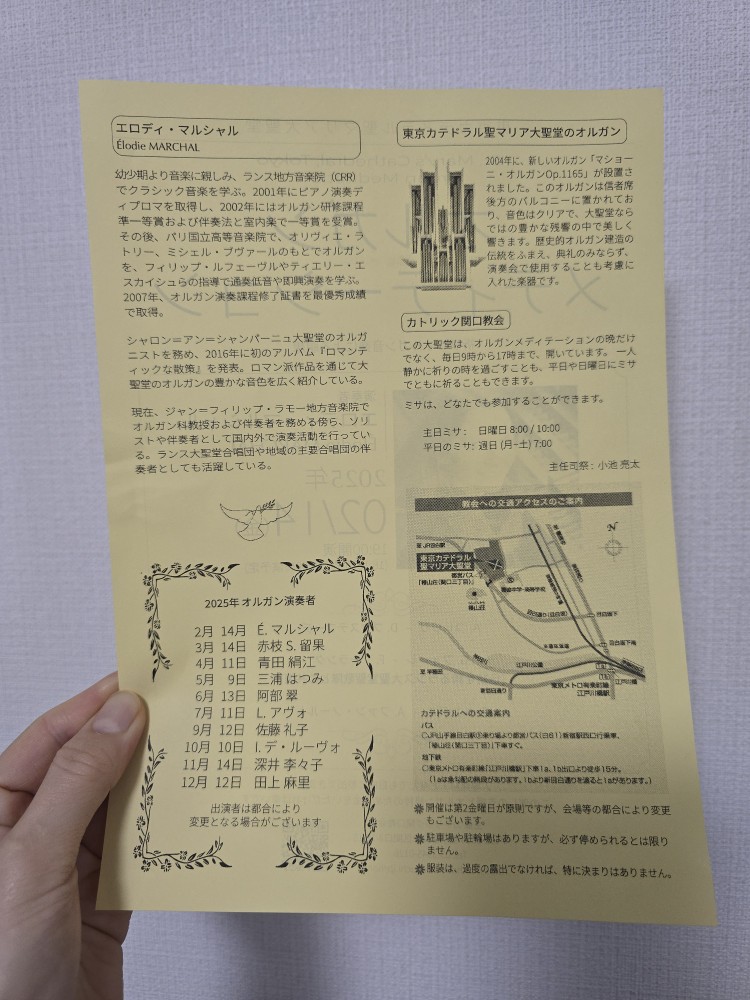 エロディ・マルシャル
Élodie MARCHAL
幼少期より音楽に親しみ、ランス地方音楽院（CRR）
でクラシック音楽を学ぶ。2001年にピアノ演奏デ
ィプロマを取得し、2002年にはオルガン研修課程
準一等賞および伴奏法と室内楽で一等賞を受賞。
その後、パリ国立高等音楽院で、オリヴィエ・ラ
トリー、ミシェル・ブヴァールのもとでオルガン
を、フィリップ・ルフェーヴルやティエリー・エ
スカイシュらの指導で通奏低音や即興演奏を学ぶ。
2007年、オルガン演奏課程修了証書を最優秀成績
で取得。
シャロン＝アン＝シャンパーニュ大聖堂のオルガ
ニストを務め、2016年に初のアルバム『ロマンテ
ィックな散策』を発表。ロマン派作品を通じて大
聖堂のオルガンの豊かな音色を広く紹介している。
現在、ジャン＝フィリップ・ラモー地方音楽院で
オルガン科教授および伴奏者を務める傍ら、ソリ
ストや伴奏者として国内外で演奏活動を行ってい
る。ランス大聖堂合唱団や地域の主要合唱団の伴
奏者としても活躍している。
2025年 オルガン演奏者
2月 14日 É. マルシャル
3月 14日 赤枝 S. 留果
4月 11日 青田 絹江
5月 9日 三浦 はつみ
6月 13日 阿部 翠
7月 11日 L. アヴォ
9月 12日 佐藤 礼子
10月 10日 I. デ・ルーヴォ
11月 14日 深井 李々子
12月 12日 田上 麻里
出演者は都合により
変更となる場合がございます
東京カテドラル聖マリア大聖堂のオルガン
2004年に、新しいオルガン「マショー
ニ・オルガンOp.1165」が設置さ
れました。このオルガンは信者席
後方のバルコニーに置かれてお
り、音色はクリアで、大聖堂なら
ではの豊かな残響の中で美しく
響きます。歴史的オルガン建造の
伝統をふまえ、典礼のみならず、
演奏会で使用することも考慮に
入れた楽器です。
カトリック関口教会
この大聖堂は、オルガンメディテーションの晩だけ
でなく、毎日9時から17時まで、開いています。 一人
静かに祈りの時を過ごすことも、平日や日曜日にミサ
でともに祈ることもできます。
ミサは、どなたでも参加することができます。
主日ミサ： 日曜日 8:00 / 10:00
平日のミサ: 週日 (月–土) 7:00
主任司祭 : 小池 亮太
教会への交通アクセスのご案内
N
至 JR目白駅
東京カテドラル
聖マリア大聖堂
都営バス
「椿山荘(関口三丁目)」
獨協中学・高等学校
椿山荘
目白通り(目白坂)
目白坂下
目白坂下南
神田川
江戸川公園
至 早稲田
新目白通り
東京メトロ有楽町線
江戸川橋駅
カテドラルへの交通案内
バス
○JR山手線目白駅⑤乗り場より都営バス(白61)新宿駅西口行乗車、
「椿山荘(関口三丁目)」下車すぐ。
地下鉄
○東京メトロ有楽町線「江戸川橋駅」下車1a、1b出口より徒歩15分。
(1aは急勾配の階段があります。1bより新目白通りを渡ると1aがあります。)
開催は第2金曜日が原則ですが、会場等の都合により変更
もございます。
駐車場や駐輪場はありますが、必ず停められるとは限り
ません。
服装は、過度の露出でなければ、特に決まりはありません。